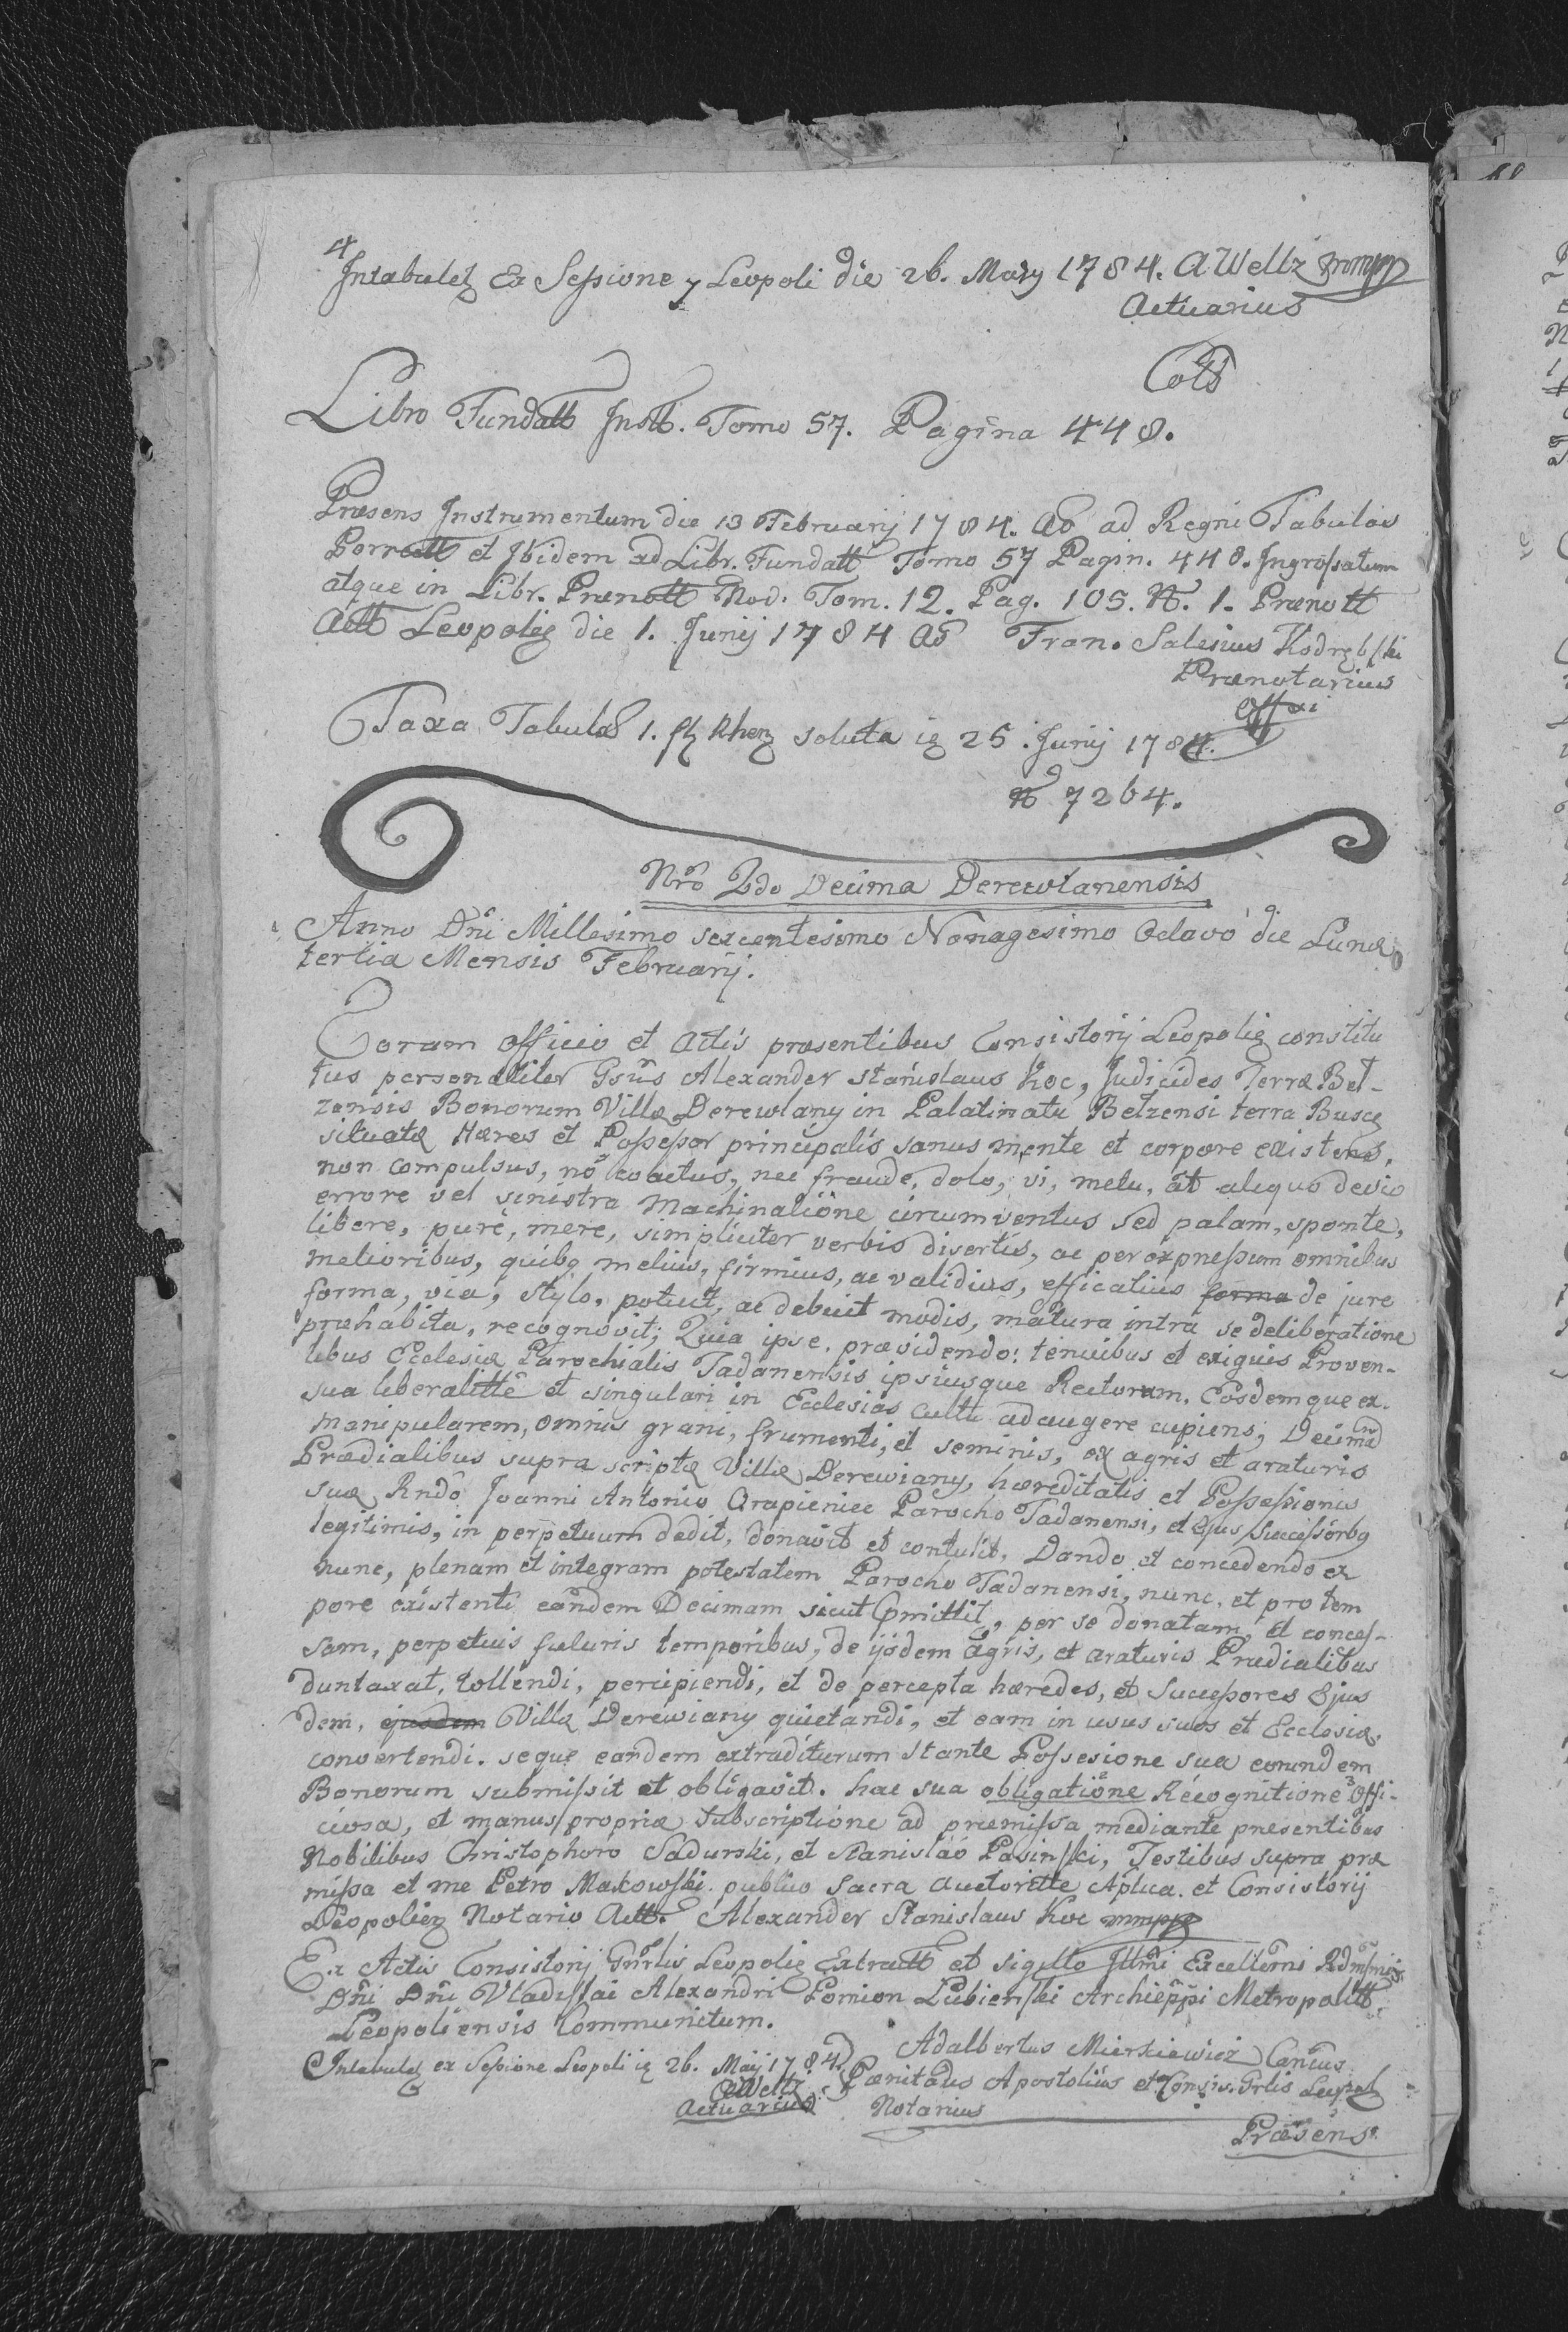 4
Intabuletz Ex Sessione 7 Leopoli die 26. Maij 1784. A Weltz mmpp
Actuarius
Cott
Libro Fundatt Instt. Tomo 57. Pagina 448.
Præsens Instrumentum die 13 Februarij 1784. Aō ad Regni Tabulas
Porrectt et Ibidem ad Libr. Fundatt Tomo 57 Pagin. 448. Ingrossatum
atque in Libr. Prænott Nod. Tom. 12. Pag. 105. N. 1. Prænott
Actt Leopolię die 1. Junij 1784 Aō Fran. Salesius Kodrębski
Prænotarius
Offi
Taxa Tabulæ 1. fl Rhen soluta ię 25. Junij 1784.
No 7264.
Nrō 2do Decima Derewlanensis
Anno Dñi Millesimo sexcentesimo Nonagesimo Octavo die Lunæ
tertia Mensis Februarij.
Coram Officio et Actis præsentibus Consistorij Leopolię constitu
tus personaliter Gsus Alexander Stanislaus Koc, Judicides Terræ Bel-
zensis Bonorum Villæ Derewlany in Palatinatu Belzensi terra Buscę
situatæ Hæres et Possessor principalis sanus mente et corpore existens,
non compulsus, nō coactus, nec fraude, dolo, vi, metu, āt aliquo devio
errore vel sinistra Machinatione circumventus sed palam, sponte,
libere, purè, mere, simpliciter verbis disertis, ac per expressum omnibus
melioribus, quibq melius, firmius, ac validius, efficatius forma de jure
forma, via, stylo, potuit, ac debuit modis, matura intra se deliberatione
præhabita, recognovit; Quia ipse, prævidendo: tenuibus et exiguis Proven-
tibus Ecclesiæ Parochialis Tadanensis ipsiusque Rectorum, Eosdemque ex.
sua liberalittē et singulari in Ecclesias cultu adaugere cupiens, Decimā
Manipularem, omnis grani, frumenti, et seminis, ex agris et araturis
Prædialibus supra scriptæ Villæ Derewiany, hæreditatis et Possessionis
suæ Rndō Joanni Antonio Arapieniec Parocho Tadanensi, et Ejus Successorbq
legitimis, in perpetuum dedit, donavit et contulit, Dando et concedendo ex
nunc, plenam et integram potestatem Parocho Tadanensi, nunc, et pro tem
pore existenti eandem Decimam sicut pmittit, per se donatam, et conces-
sam, perpetuis futuris temporibus, de ijsdem Agris, et araturis Prædialibus
duntaxat, tollendi, percipiendi, et de percepta hæredes, et Successores Ejus
dem, ejusdem Villæ Derewiany quietandi, et eam in usus suos et Ecclesiæ
convertendi. seque eandem extraditurum stante Possesione sua eorundem
Bonorum submissit et obligavit. hac sua obligatione Recognitione Offi-
ciosa, et manus propriæ Subscriptione ad præmissa mediante præsentibus
Nobilibus Christophoro Sadurski, et Stanislaō Pasinski, Testibus supra præ
missa et me Petro Makowski publico Sacra Auctoritte Aplica. et Consistorij
Leopolien Notario Actt. Alexander Stanislaus Koc mmpp
Ex Actis Consistorij Gnrlis Leopolię Extractt et sigillo Illmi Excellemi Rdmisimi
Dñi Dñi Vladislai Alexandri Pomian Lubienski Archieppi Metropolitt
Leopoliensis Communitum.
Intabuletz ex Sessione Leopoli ię 26. Maij 1784
AWeltz
Actuarius
Adalbertus Mierkiewicz Cančus
Pænitaus Apostolius et Consis. Grlis Leopol
Notarius
Præsens